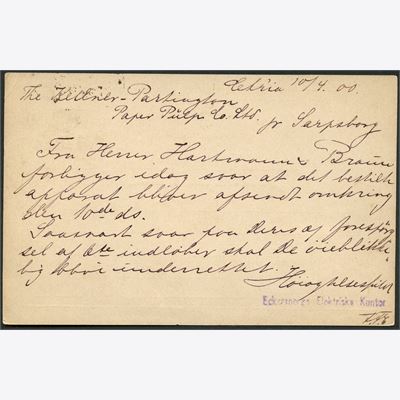 10/4. 00.
The Kellner-Partington
Paper Pulp Co. Ltd.
pr Sarpsborg
Fra Herrer Hartmann & Braun
foreligger idag svar at det bestilte
apparat bliver afsendt omkring
den 10de ds.
Saasnart svar paa Deres forespørg
sel af 6te indløber skal De øieblikke
lig blive underrettet.
Høiagtelsesfuldt
Elektriske Kontor